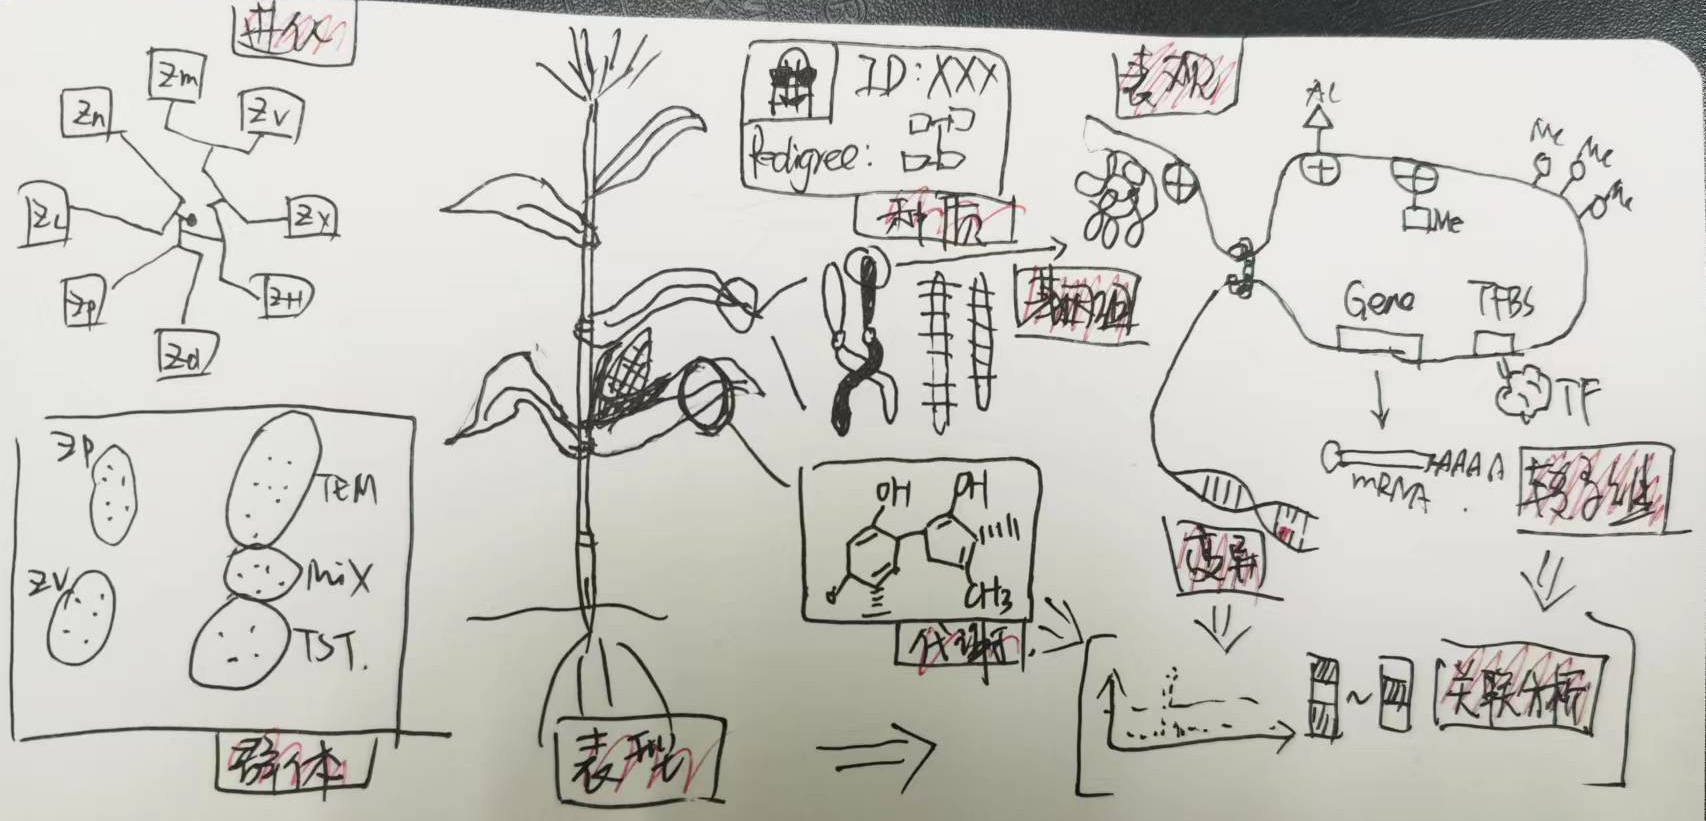 进化
Zm
Zn
Zv
ZL
Zx
Zp
ZH
Zd
ZP
TEM
ZV
MiX
TST.
群体
表型
ID: XXX
Pedigree:
种质
基因组
OH
OH
CH3
代谢
表观
AC
Me
Me
Me
Me
Gene
TFBS
TF
mRNA
AAAA
变异
关联分析